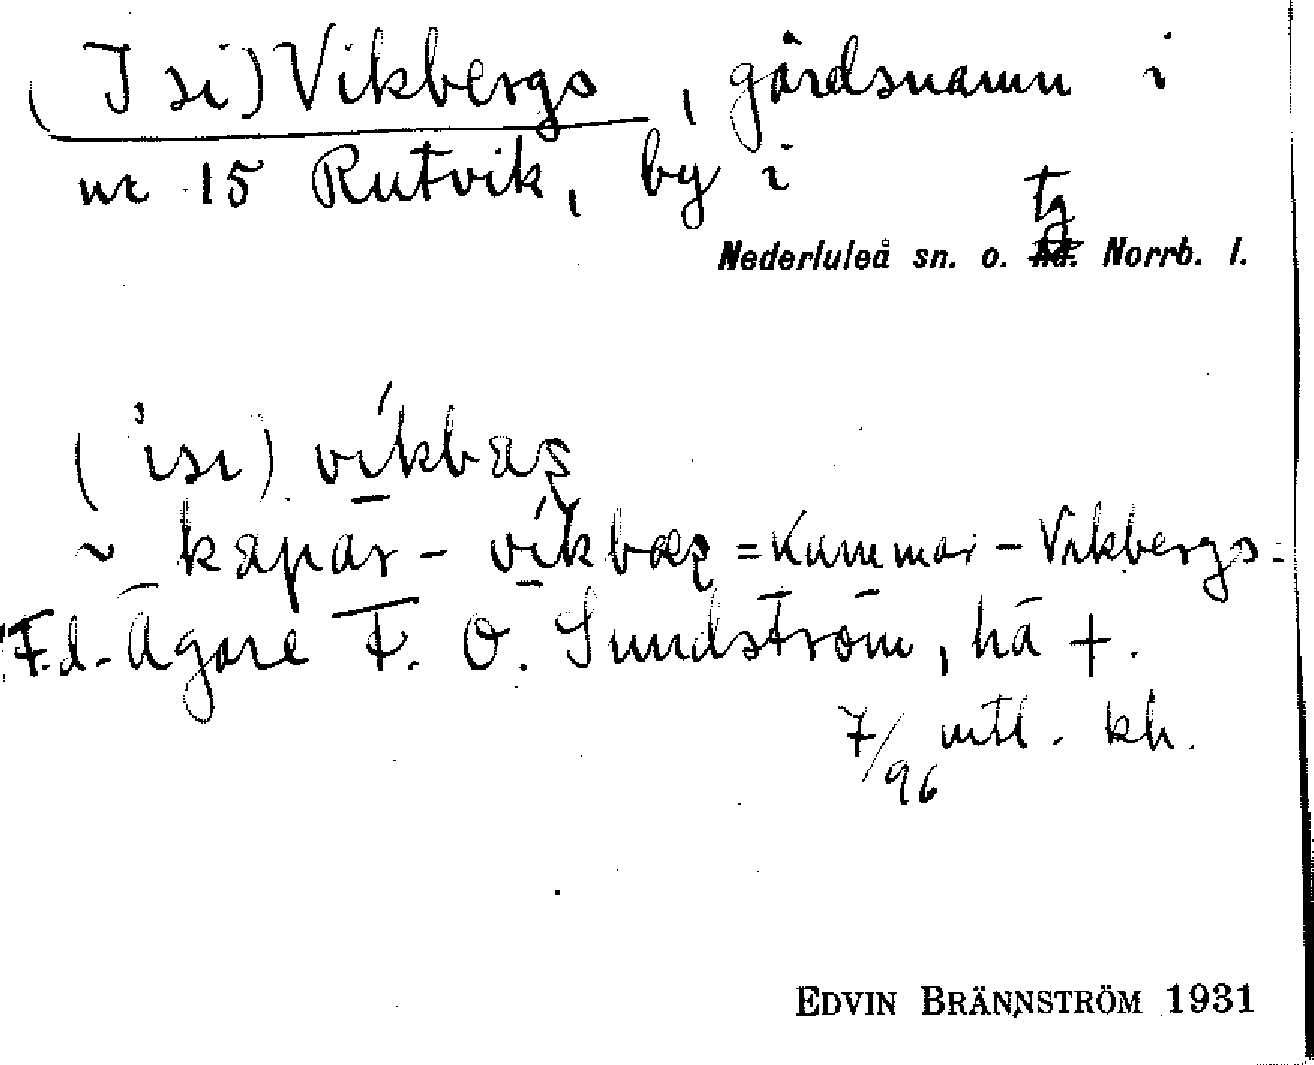 (I si) Vikbergs, gårdsnamn i
nr 15 Rutvik, by i
tg
Nederluleå sn. o. hd. Norrb. l.
( isi) víkbæş
~ kapar - víkbæş = Kammar - Vikbergs.
F.d. Ägare F. O. Sundström, hä +.
7/96 mtl. kh.
EDVIN BRÄNNSTRÖM 1931